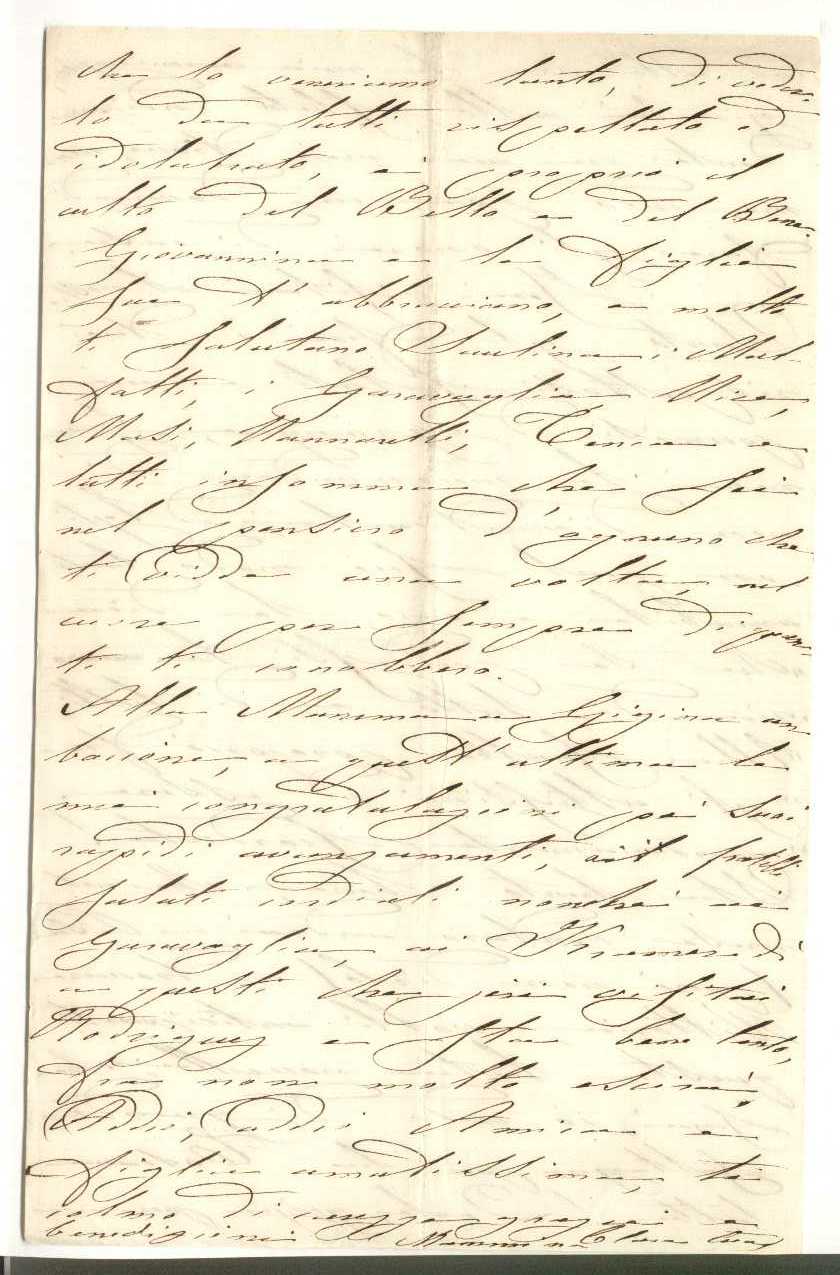 che lo veneriamo tanto, di veder-
lo da tutti rispettato ed
idolatrato, è proprio il
culto del Bello e del Bene.
Giovannina e le figlie
sue t'abbracciano, e molto
ti salutano Paulina, i Mal-
fatti, i Garavaglia, Nice,
Masi, Nannarelli, Tenca e
tutti insomma che sei
nel pensiero d'ognuno che
ti vidde una volta, nel
cuore per sempre di quan-
ti ti conobbero.
Alla Mamma e Gigina un
bacione, a quest'ultima le
mie congratulazioni pei suoi
rapidi avanzamenti, ai fratelli
saluti cordiali nonché ai
Garavaglia, ai Kramer di
a questi che jeri visitai
Rodriguez e sta bene tanto,
fra non molto escirà.
Addio, addio Amica e
figlia amatissima, ti
colmo di carezze grazie e
benedizioni Mammina Clara tua